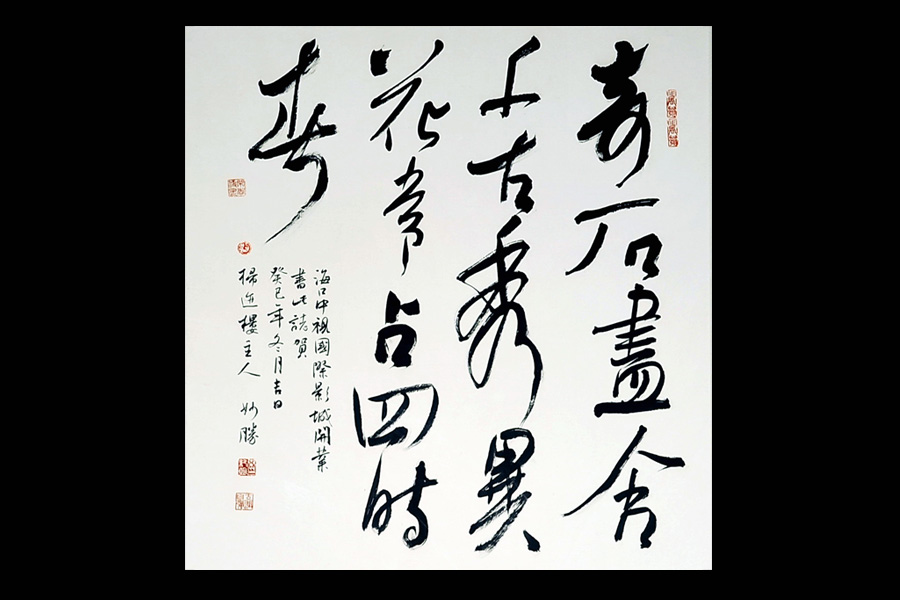 奇石盡含
千古秀異
花常占四時
春
海口中視國際影城開業
書此誌賀
癸巳年冬月吉日
掃迹樓主人 妙勝